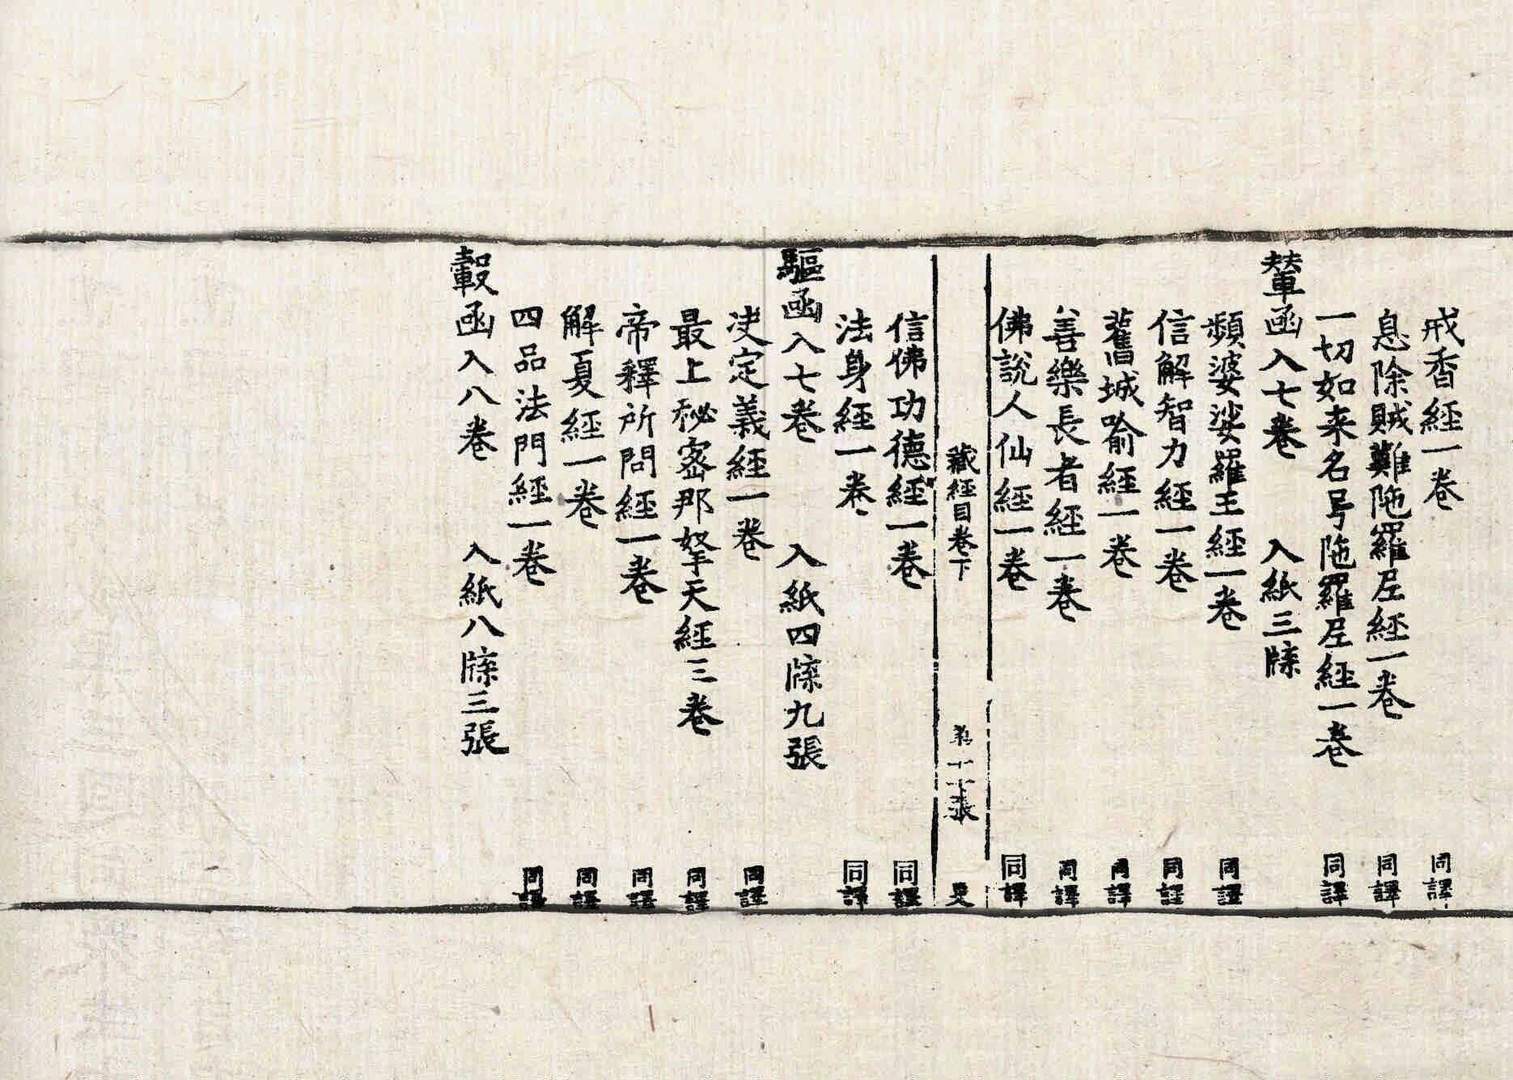 戒香經一卷 同譯
息除賊難陁羅尼經一卷 同譯
一切如来名号陁羅尼經一卷 同譯
輦函入七卷 入紙三牒
頻婆娑羅王經一卷 同譯
信解智力經一卷 同譯
舊城喻經一卷 同譯
善樂長者經一卷 同譯
佛說人仙經一卷 同譯
藏經目卷下
信佛功德經一卷 同譯
法身經一卷 同譯
驅函入七卷 入紙四牒九張
决定義經一卷 同譯
最上秘密那拏天經三卷 同譯
帝釋所問經一卷 同譯
解夏經一卷 同譯
四品法門經一卷 同譯
轂函入八卷 入紙八牒三張